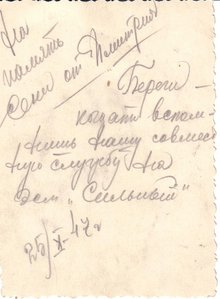 На
память
Сени от Дмитрия
Береги –
когда вспом-
нишь нашу совмест
ную службу на
эсм „Сильный"
25/X-47г